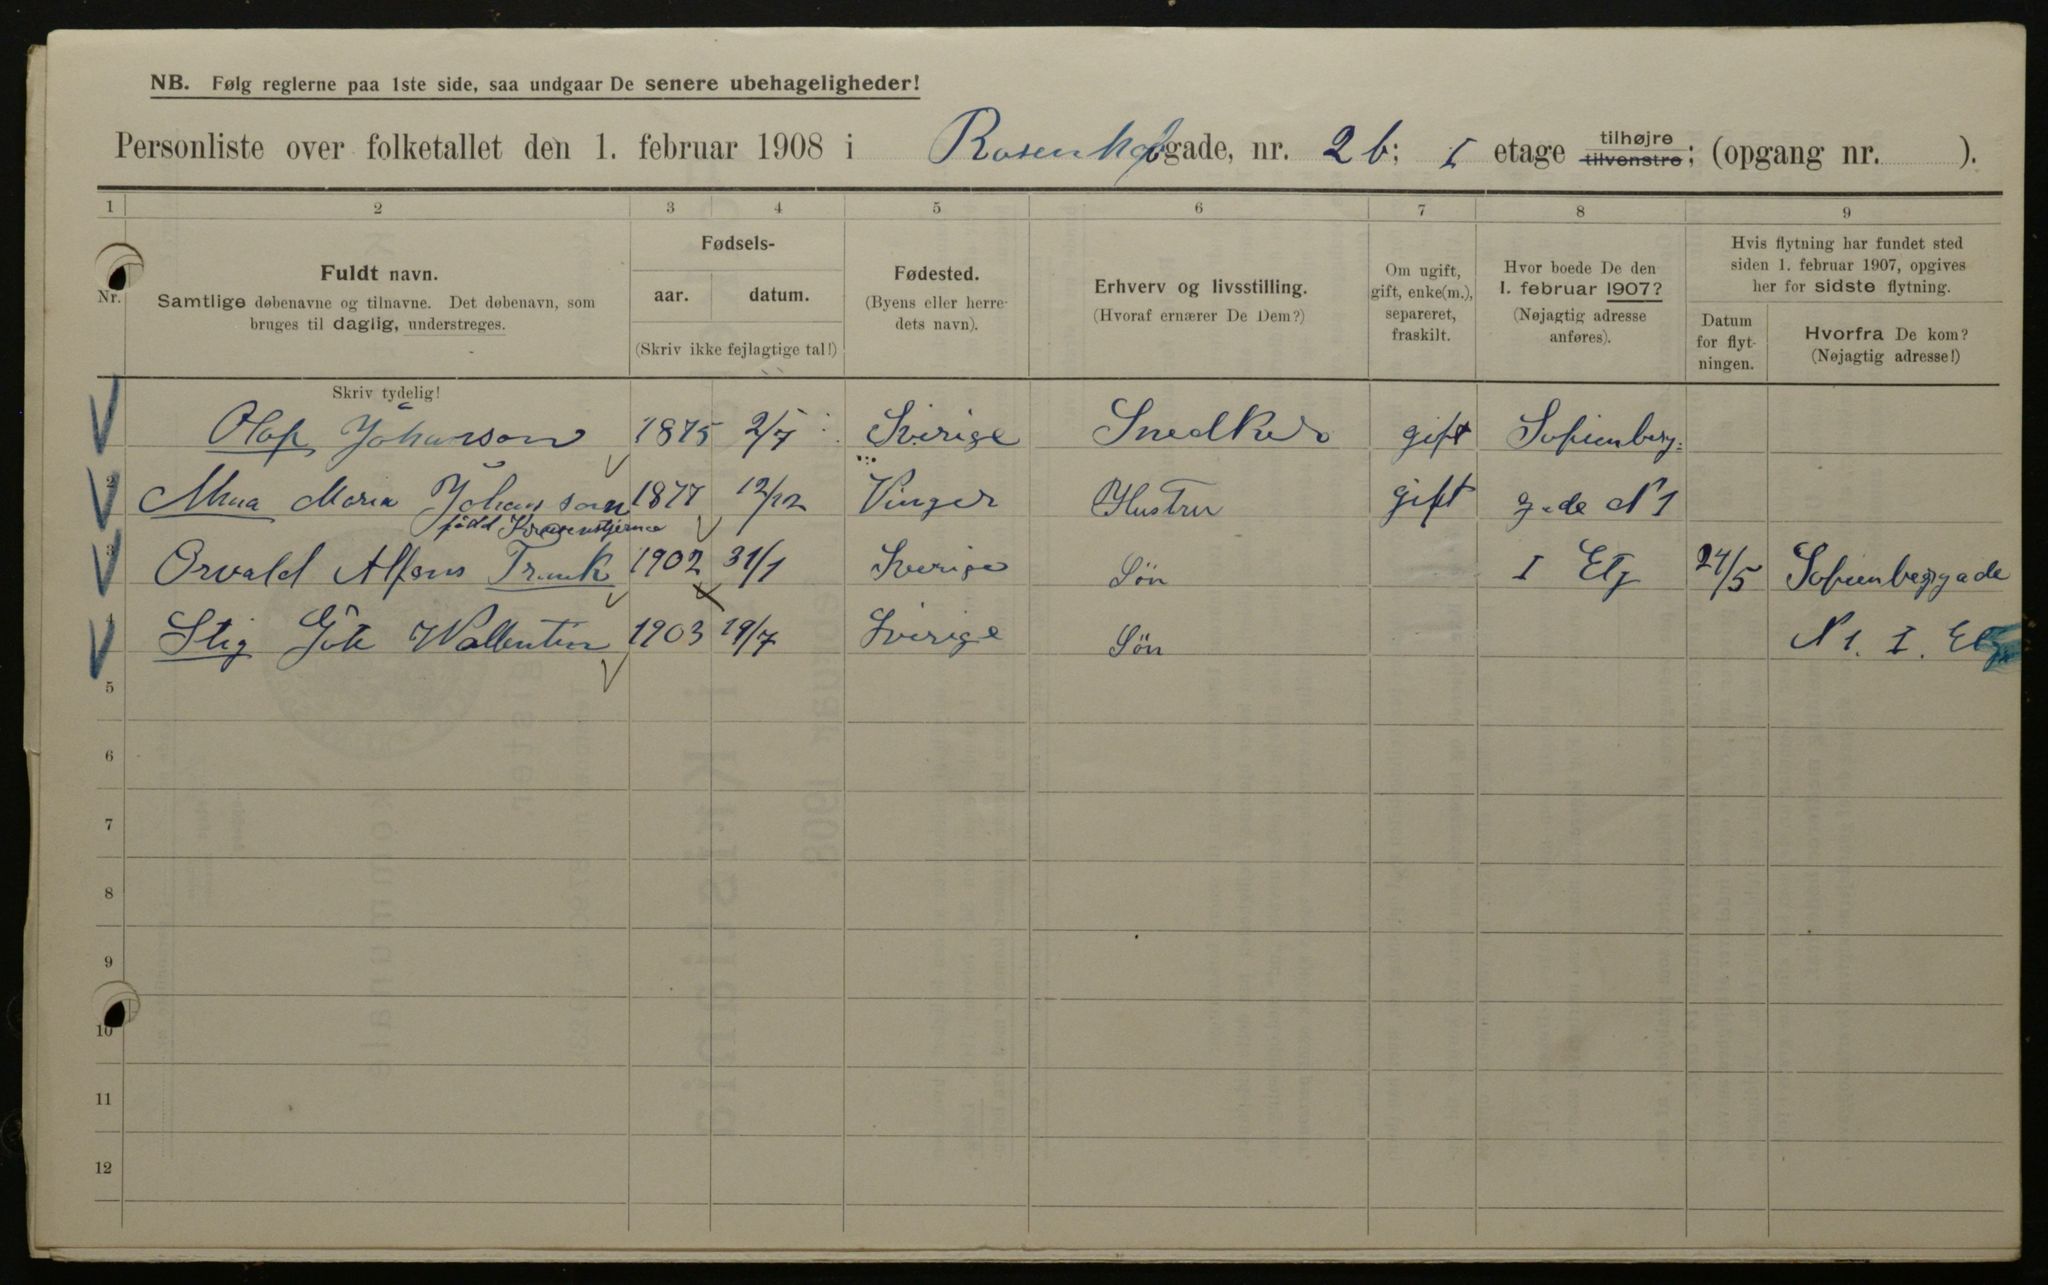 NB. Følg reglerne paa 1ste side, saa undgaar De senere ubehageligheder!
Personliste over folketallet den 1. februar 1908 i Rosenhofgade, nr. 2b; I etage tilhøjre tilvenstre; (opgang nr. ).
1 2 3 4 5 6 7 8 9
Nr.
Fuldt navn.
Samtlige døbenavne og tilnavne. Det døbenavn, som
bruges til daglig, understreges.
Fødsels-
aar. datum.
(Skriv ikke fejlagtige tal!)
Fødested.
(Byens eller herre-
dets navn).
Erhverv og livsstilling.
(Hvoraf ernærer De Dem?)
Om ugift,
gift, enke(m.),
separeret,
fraskilt.
Hvor boede De den
1. februar 1907?
(Nøjagtig adresse
anføres).
Hvis flytning har fundet sted
siden 1. februar 1907, opgives
her for sidste flytning.
Datum
for flyt-
ningen.
Hvorfra De kom?
(Nøjagtig adresse!)
Skriv tydelig!
Olof Johanson 1875 2/7 Sverige Snedker gift Sofienberg-
2 Maria Johanson 1877 12/12 Vinger Hustru gift gade N 1
född
3 Orvald Alfons 1902 31/1 Sverige Sön I Etg 24/5 Sofienberggade
4 Stig Göte Wallentin 1903 19/7 Sverige Sön N 1. I. Etg
5
6
7
8
9
10
11
12